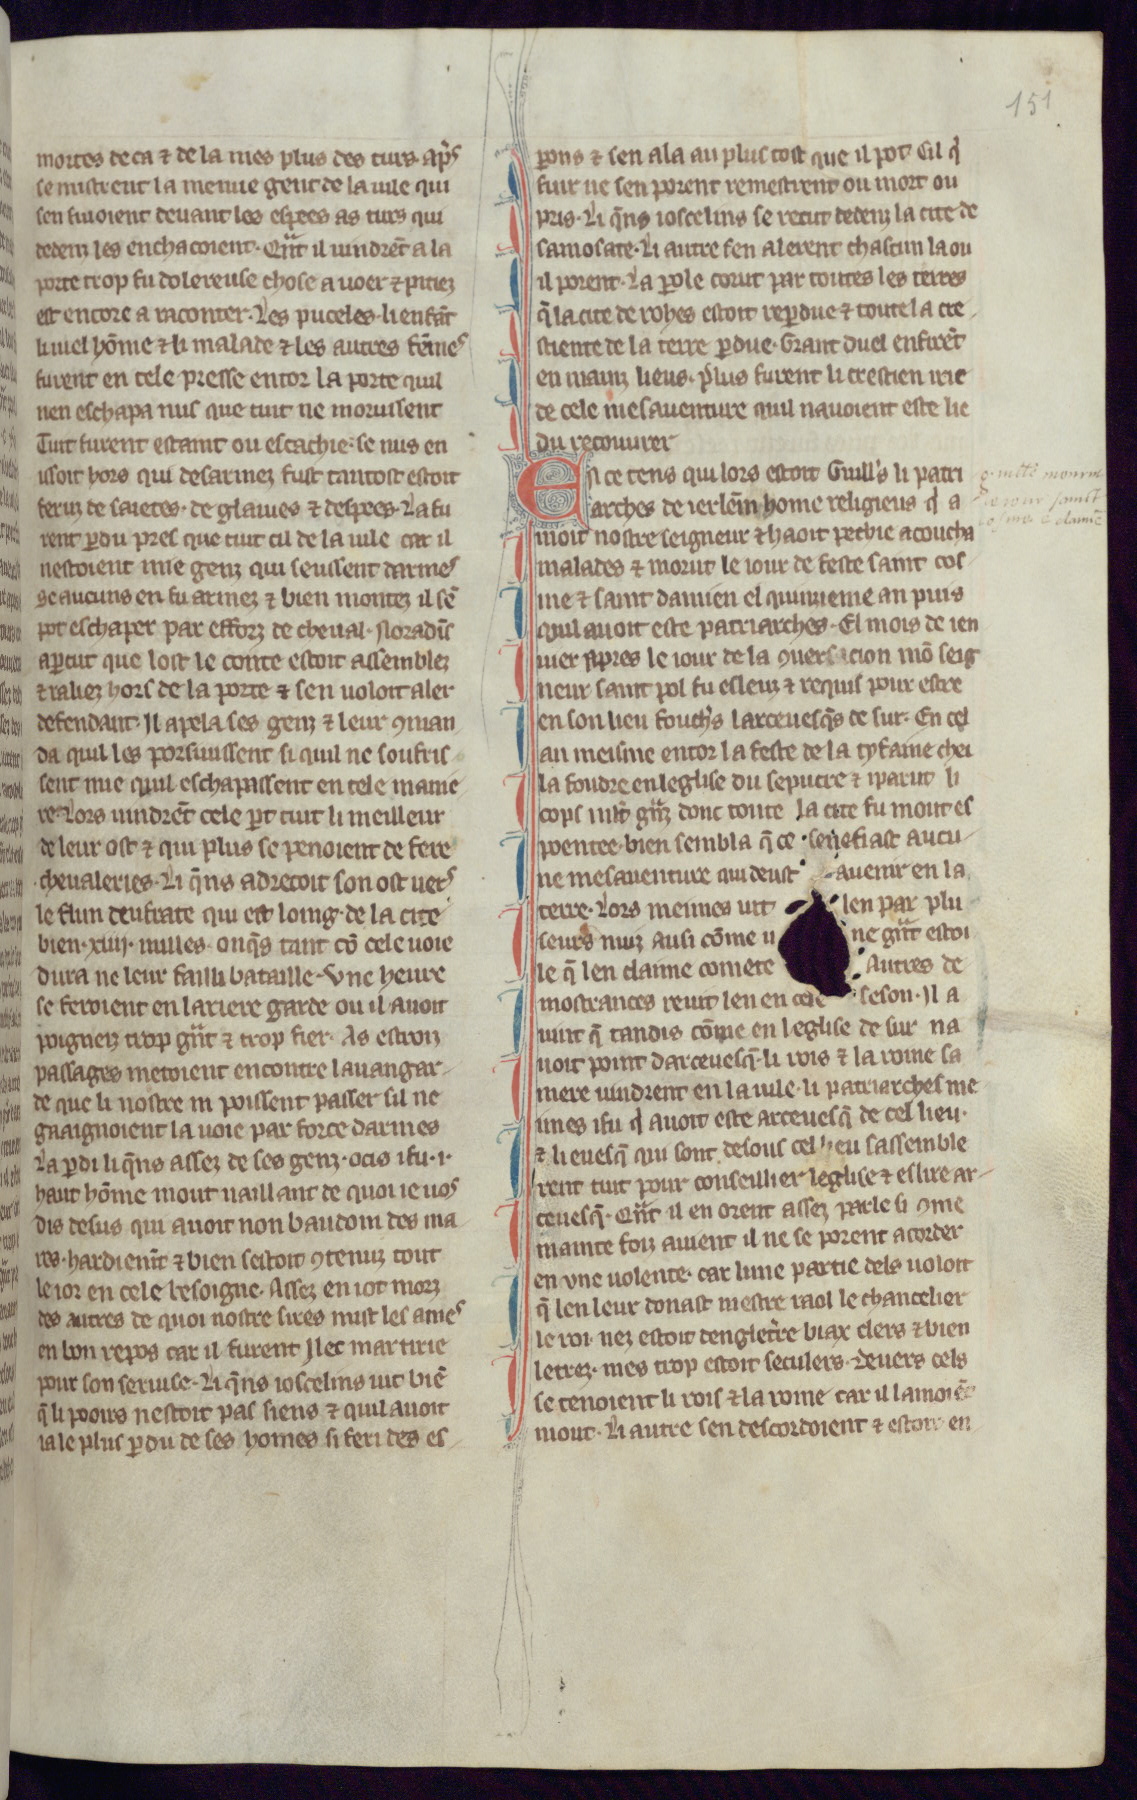 151
mortes de ca ⁊ de la mes plus des turs. ap̄s
se mistrent la menue gent de la uile qui
sen fuioient deuant les espees as turs qui
dedenz les enchacoient. Qn̄t il uindrēt a la
porte trop fu dolereuse chose a uoer ⁊ pitiez
est encore a raconter. Les puceles. li enfāt
li uiel hōme ⁊ li malade ⁊ les autres fēmes
furent en cele presse entor la porte quil
nen eschapa nus que tuit ne morussent
Tuit furent estaint ou escachie. se nus en
issoit hors qui desarmez fust tantost estoit
feruz de saietes. de glaiues ⁊ despees. La fu
rent ꝑdu pres que tuit cil de la uile car il
nestoient mie genz qui seussent darmes
se aucuns en fu armez ⁊ bien montez il sē
pot eschaper par efforz de cheual. Noradīs
aꝑcut que lost le conte estoit assemblez
⁊ raliez hors de la porte ⁊ sen uoloit aler
defendant. Il apela ses genz ⁊ leur ꝯman
da quil les porsuissent si quil ne soufris
sent mie quil eschapassent en tele manie
re. Lors uindrēt cele ꝑt tuit li meilleur
de leur ost ⁊ qui plus se penoient de fere
cheualeries. Li q̄ns adrecoit son ost uers
le flun deufrate qui est loing de la cite
bien .xiiij. milles. onq̄s tant cō cele uoie
dura ne leur failli bataille. Vne heure
se feroient en lariere garde ou il auoit
poigneiz trop gn̄t ⁊ trop fier. As estroiz
passages metoient encontre lauangar
de que li nostre ni poissent passer sil ne
gaaignoient la uoie par force darmes
La ꝑdi li q̄ns assez de ses genz. ocis i fu .i.
haut hōme mout uaillant de quoi ie uos
dis desus qui auoit non baudoin des ma
res. hardiem̄t ⁊ bien sestoit ꝯtenuz tout
le ior en cele besoigne. Assez en iot morz
des autres de quoi nostre sires mist les ames
en bon repos car il furent ilec martirie
pour son seruise. Li q̄ns ioscelins uit biē
q̄ li pooirs nestoit pas siens ⁊ quil auoit
ia le plus ꝑdu de ses homes si feri des es
ꝑons ⁊ sen ala au plus tost que il pot. Cil q̄
fuir ne sen porent remestrent ou mort ou
pris. Li q̄ns ioscelins se recut dedenz la cite de
samosate. Li autre sen alerent chascun la ou
il porent. La ꝑole corut par toutes les terres
q̄ la cite de rohes estoit reꝑdue ⁊ toute la cre
stiente de la terre ꝑdue. Grant duel en firēt
en mainz lieus. plus furent li crestien irie
de cele mesauenture quil nauoient este lie
du recouurer
En ce tens qui lors estoit Guill's li patri
arches de ierl̄em home religieus q̄ a
moit nostre seigneur ⁊ haoit pechie acoucha
malades ⁊ morut le iour de feste saint cos
me ⁊ saint damien el quinzieme an puis
quil auoit este patriarches. El mois de ien
uier apres le iour de la ꝯuersacion mō seig
neur saint pol fu esleuz ⁊ requis pour estre
en son lieu fouch's larceuesq̄s de sur. En cel
an meisme entor la feste de la tyfaine chei
la foudre en leglise du sepucre ⁊ iparut li
cops mlt̄ gn̄z donc toute la cite fu mout es
poentee. bien sembla q̄ ce senefiast aucu
ne mesauenture qui deust auenir en la
terre. Lors meimes uit len par plu
seurs nuiz ausi cōme u ne gn̄t estoi
le q̄ len claime comete Autres de
mostrances reuit len en cele seson. Il a
uint q̄ tandis cōme en leglise de sur na
uoit point darceuesq̄. li rois ⁊ la roine sa
mere uindrent en la uile. li patriarches me
imes i fu q̄ auoit este arceuesq̄ de cel lieu.
⁊ li euesq̄ qui sont desous cel lieu sassemble
rent tuit pour conseillier leglise ⁊ eslire ar
ceuesq̄. Qn̄t il en orent assez parle si ꝯme
mainte foiz auient il ne se porent acorder
en vne uolente. car lune partie dels uoloit
q̄ len leur donast mestre raol le chancelier
le roi. nez estoit dengletere biax clers ⁊ bien
letrez. mes trop estoit seculers. Deuers cels
se tenoient li rois ⁊ la roine car il lamoiēt
mout. Li autre sen descordoient ⁊ estoit en